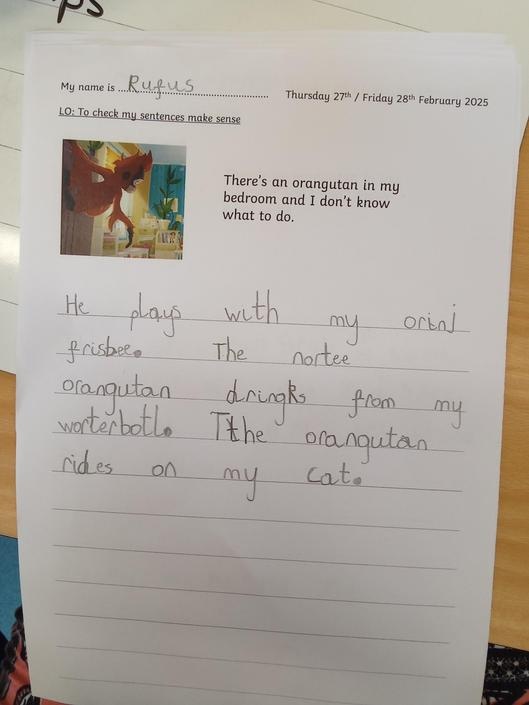 My name is Rufus
Thursday 27th / Friday 28th February 2025
LO: To check my sentences make sense
There's an orangutan in my
bedroom and I don't know
what to do.
He plays with my orinj
frisbee. The nortee
orangutan dringks from my
worterbotl. Tthe orangutan
rides on my cat.